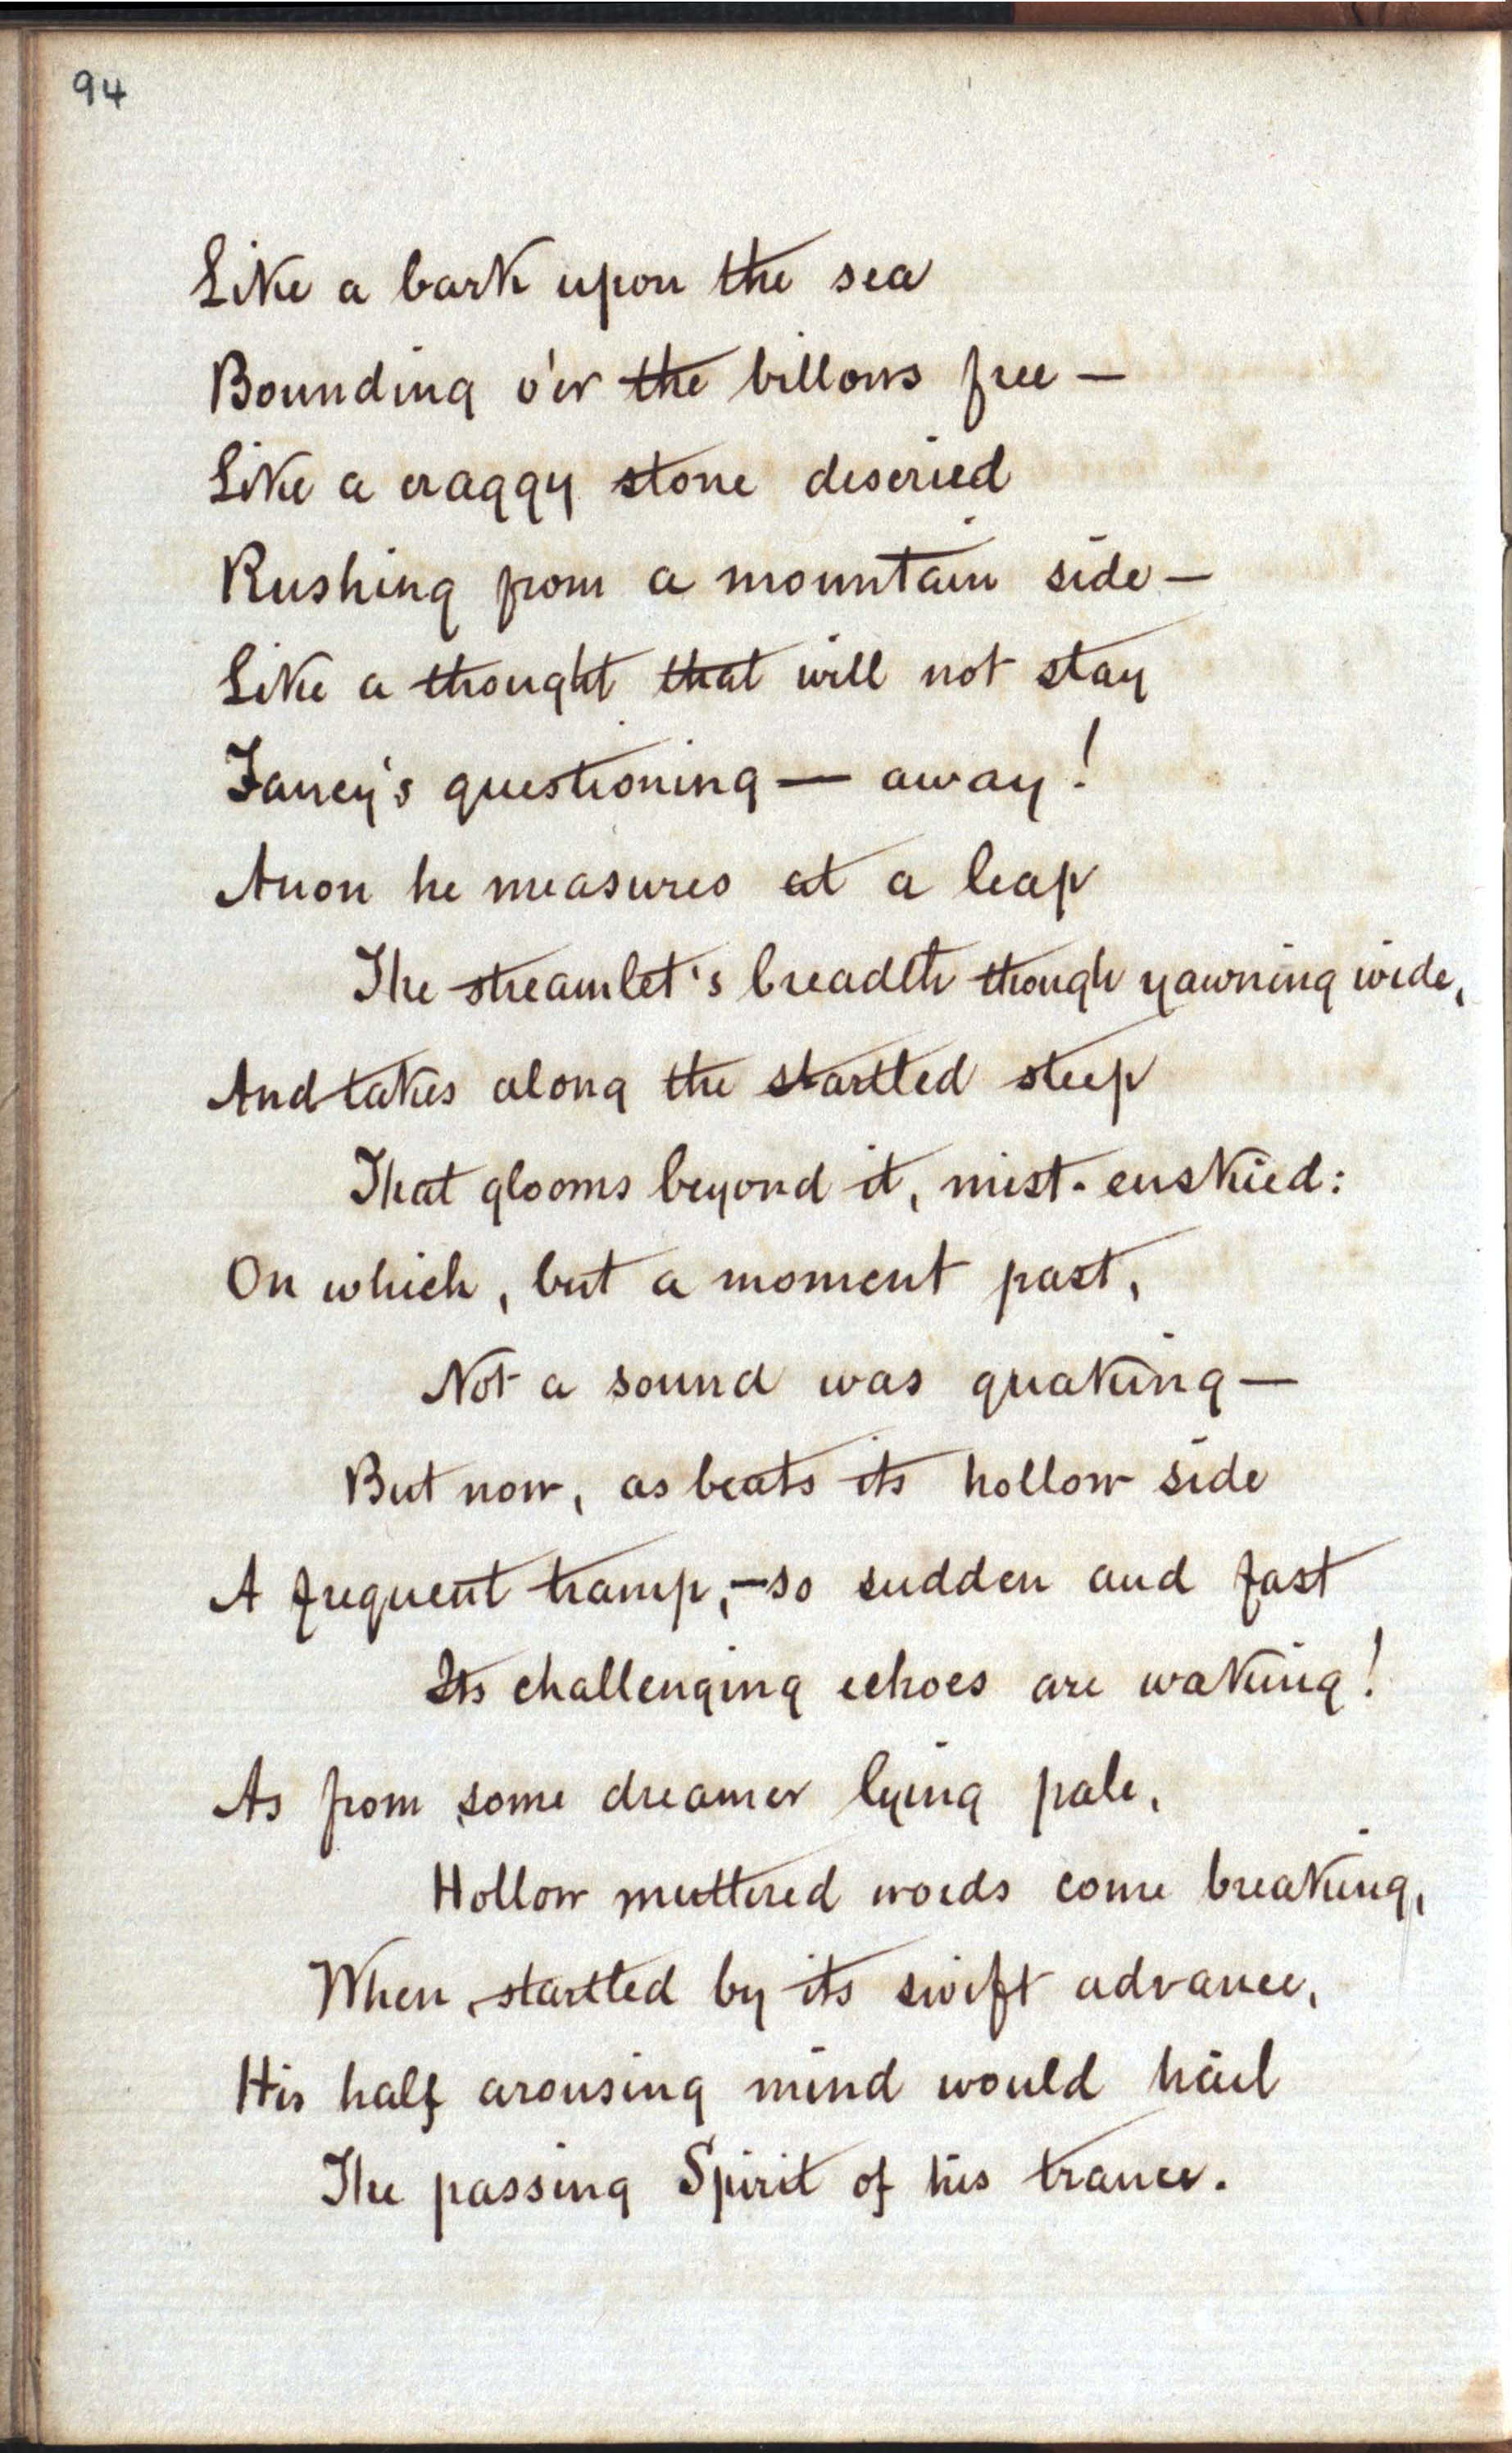 94
Like a bark upon the sea
Bounding o'er the billows free —
Like a craggy stone descried
Rushing from a mountain side —
Like a thought that will not stay
Fancy's questioning — away!
Anon he measures at a leap
The streamlet's breadth though yawning wide,
And takes along the startled steep
That glooms beyond it, mist-enskied:
On which, but a moment past,
Not a sound was quaking —
But now, as beats its hollow side
A frequent tramp, — so sudden and fast
Its challenging echoes are waking!
As from some dreamer lying pale,
Hollow muttered words come breaking,
When, startled by its swift advance,
His half arousing mind would hail
The passing Spirit of his trance.